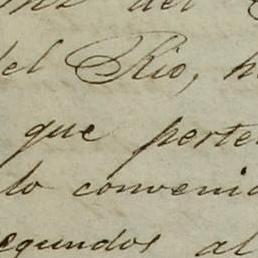 del
del Rio, h
que perte
do convenid
segundos al